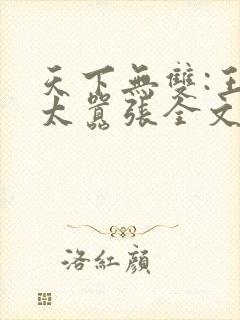 天下無雙:王
太囂張全文
洛紅顏